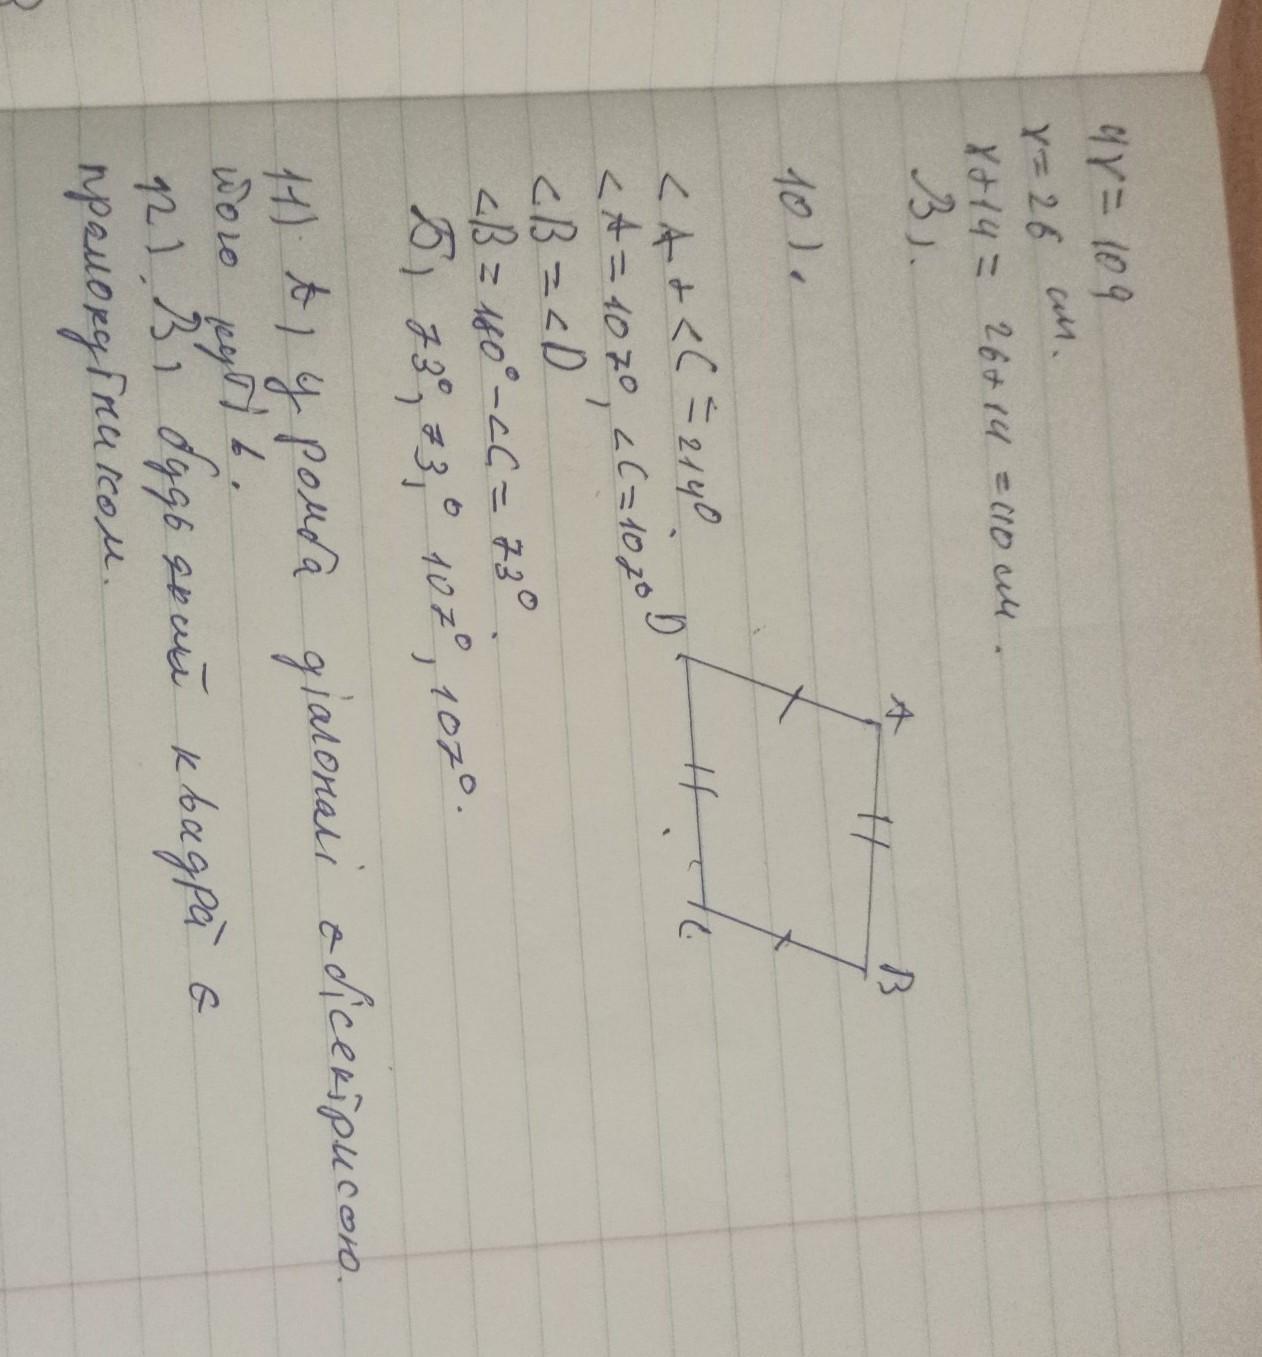 4x = 109
x = 26 см.
x+14 = 26+14 = 40 см.
В).
10).
A
B
D
C.
<A + <C = 214°
<A = 107°, <C = 107°
<B = <D
<B = 180° - <C = 73°
Б) 73°, 73,° 107°, 107°.
11). А) У ромба діагоналі є бісектрисою.
його кутів.
12). В) будь який квадрат є
прямокутником.